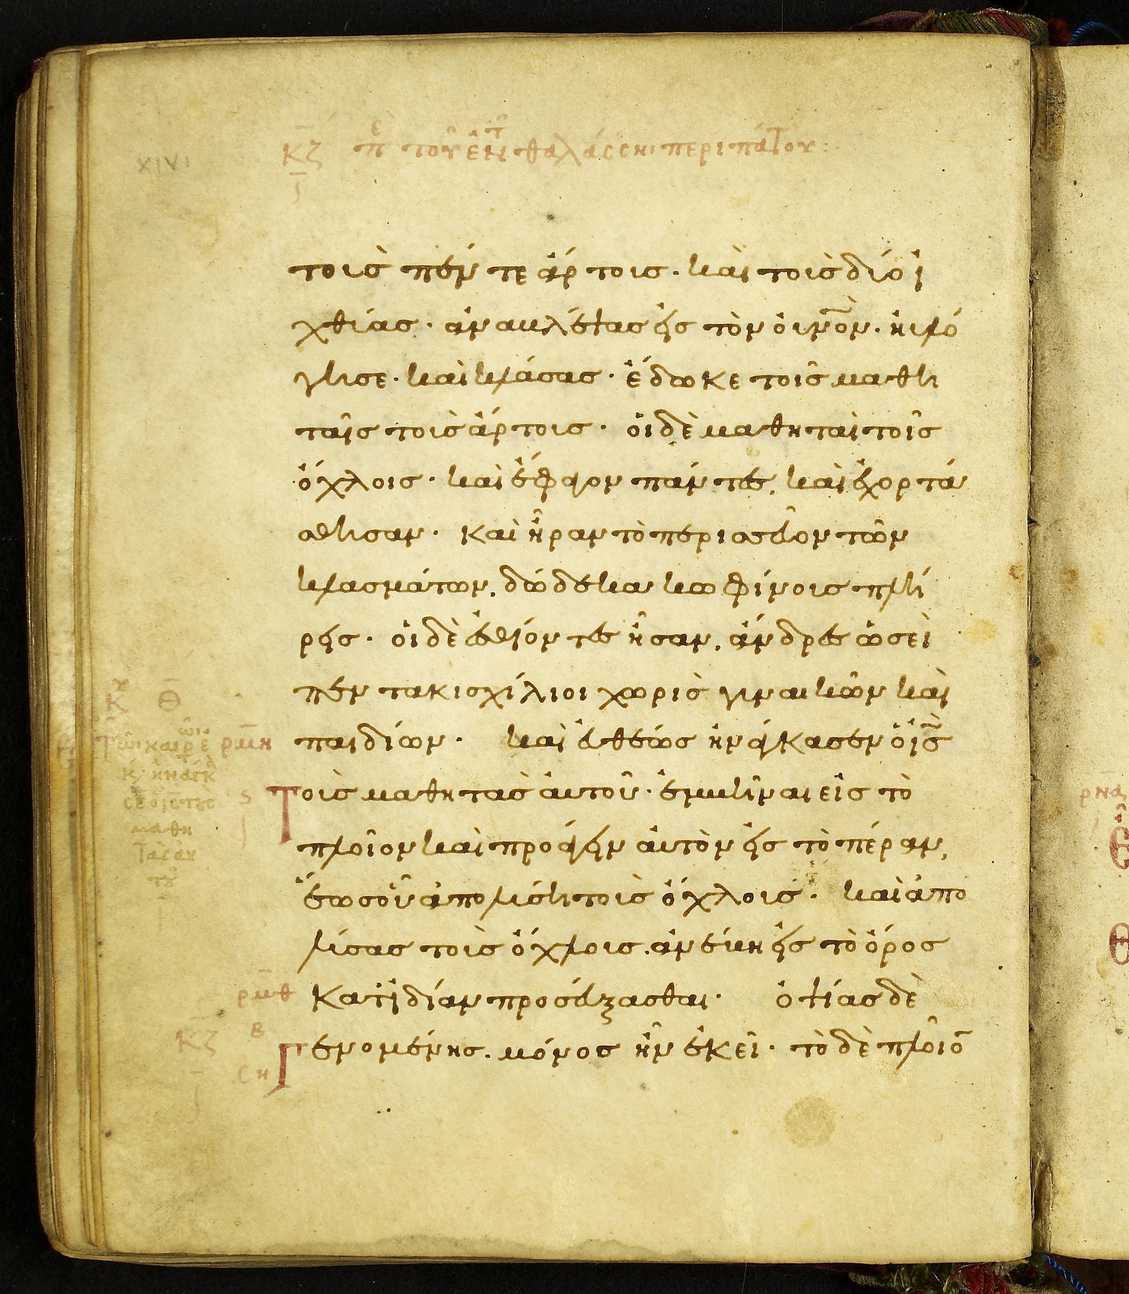 κζ πε τοῦ ἐν τῆ θαλάσση περιπάτου:
τοὺς πέντε ἄρτους· καὶ τοὺς δύο ἰ
χθύας· ἀναβλέψας εἰς τὸν οὐνὸν· ηὐλό
γησε· καὶ κλάσας· ἔδωκε τοῖς μαθη
ταῖς τοὺς ἄρτους· οἱ δὲ μαθηταὶ τοῖς
ὄχλοις· καὶ ἔφαγον πάντες, καὶ ἐχορτά
σθησαν· καὶ ἦραν τὸ περισσεῦον τῶν
κλασμάτων, δώδεκα κοφίνους πλή
ρεις· οἱ δὲ ἐσθίοντες ἦσαν, ἄνδρες ὡσεὶ
πεντακισχίλιοι χωρὶς γυναικῶν καὶ
ρμη παιδίων· καὶ εὐθέως ἠνάγκασεν ὁ ἰς
τοὺς μαθητὰς αὐτοῦ· ἐμβῆναι εἰς τὸ
πλοῖον καὶ προάγειν αὐτὸν εἰς τὸ πέραν,
ἕως οὗ ἀπολύση τοὺς ὄχλους· καὶ ἀπο
λύσας τοὺς ὄχλους. ἀνέβη εἰς τὸ ὄρος
ρμθ κατ' ἰδίαν προσεύξασθαι· ὀψίας δὲ
κζ γενομένης. μόνος ἦν ἐκεῖ· τὸ δὲ πλοῖον